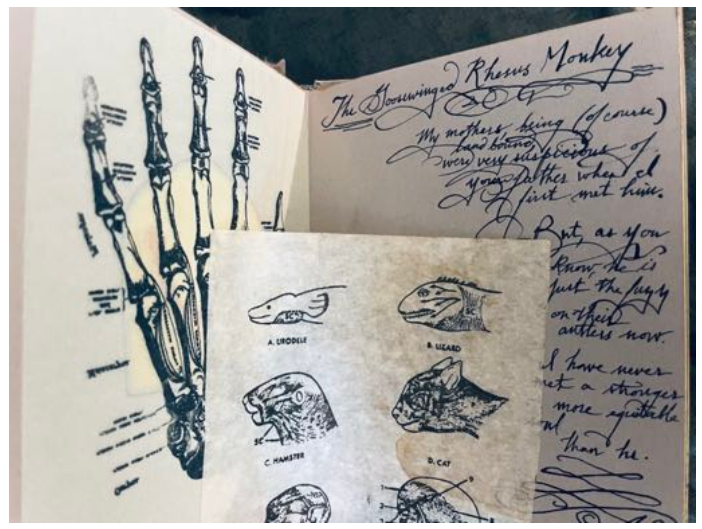 The Goosewinged Rhesus Monkey
My mothers, being (of course)
land bound,
were very suspicious of
your father when I
first met him.
But, as you
know, he is
just the fuzz
on their
antlers now.
I have never
met a stronger
more equitable
than he.
November
October
A. URODELE
B. LIZARD
SC
C. HAMSTER
D. CAT